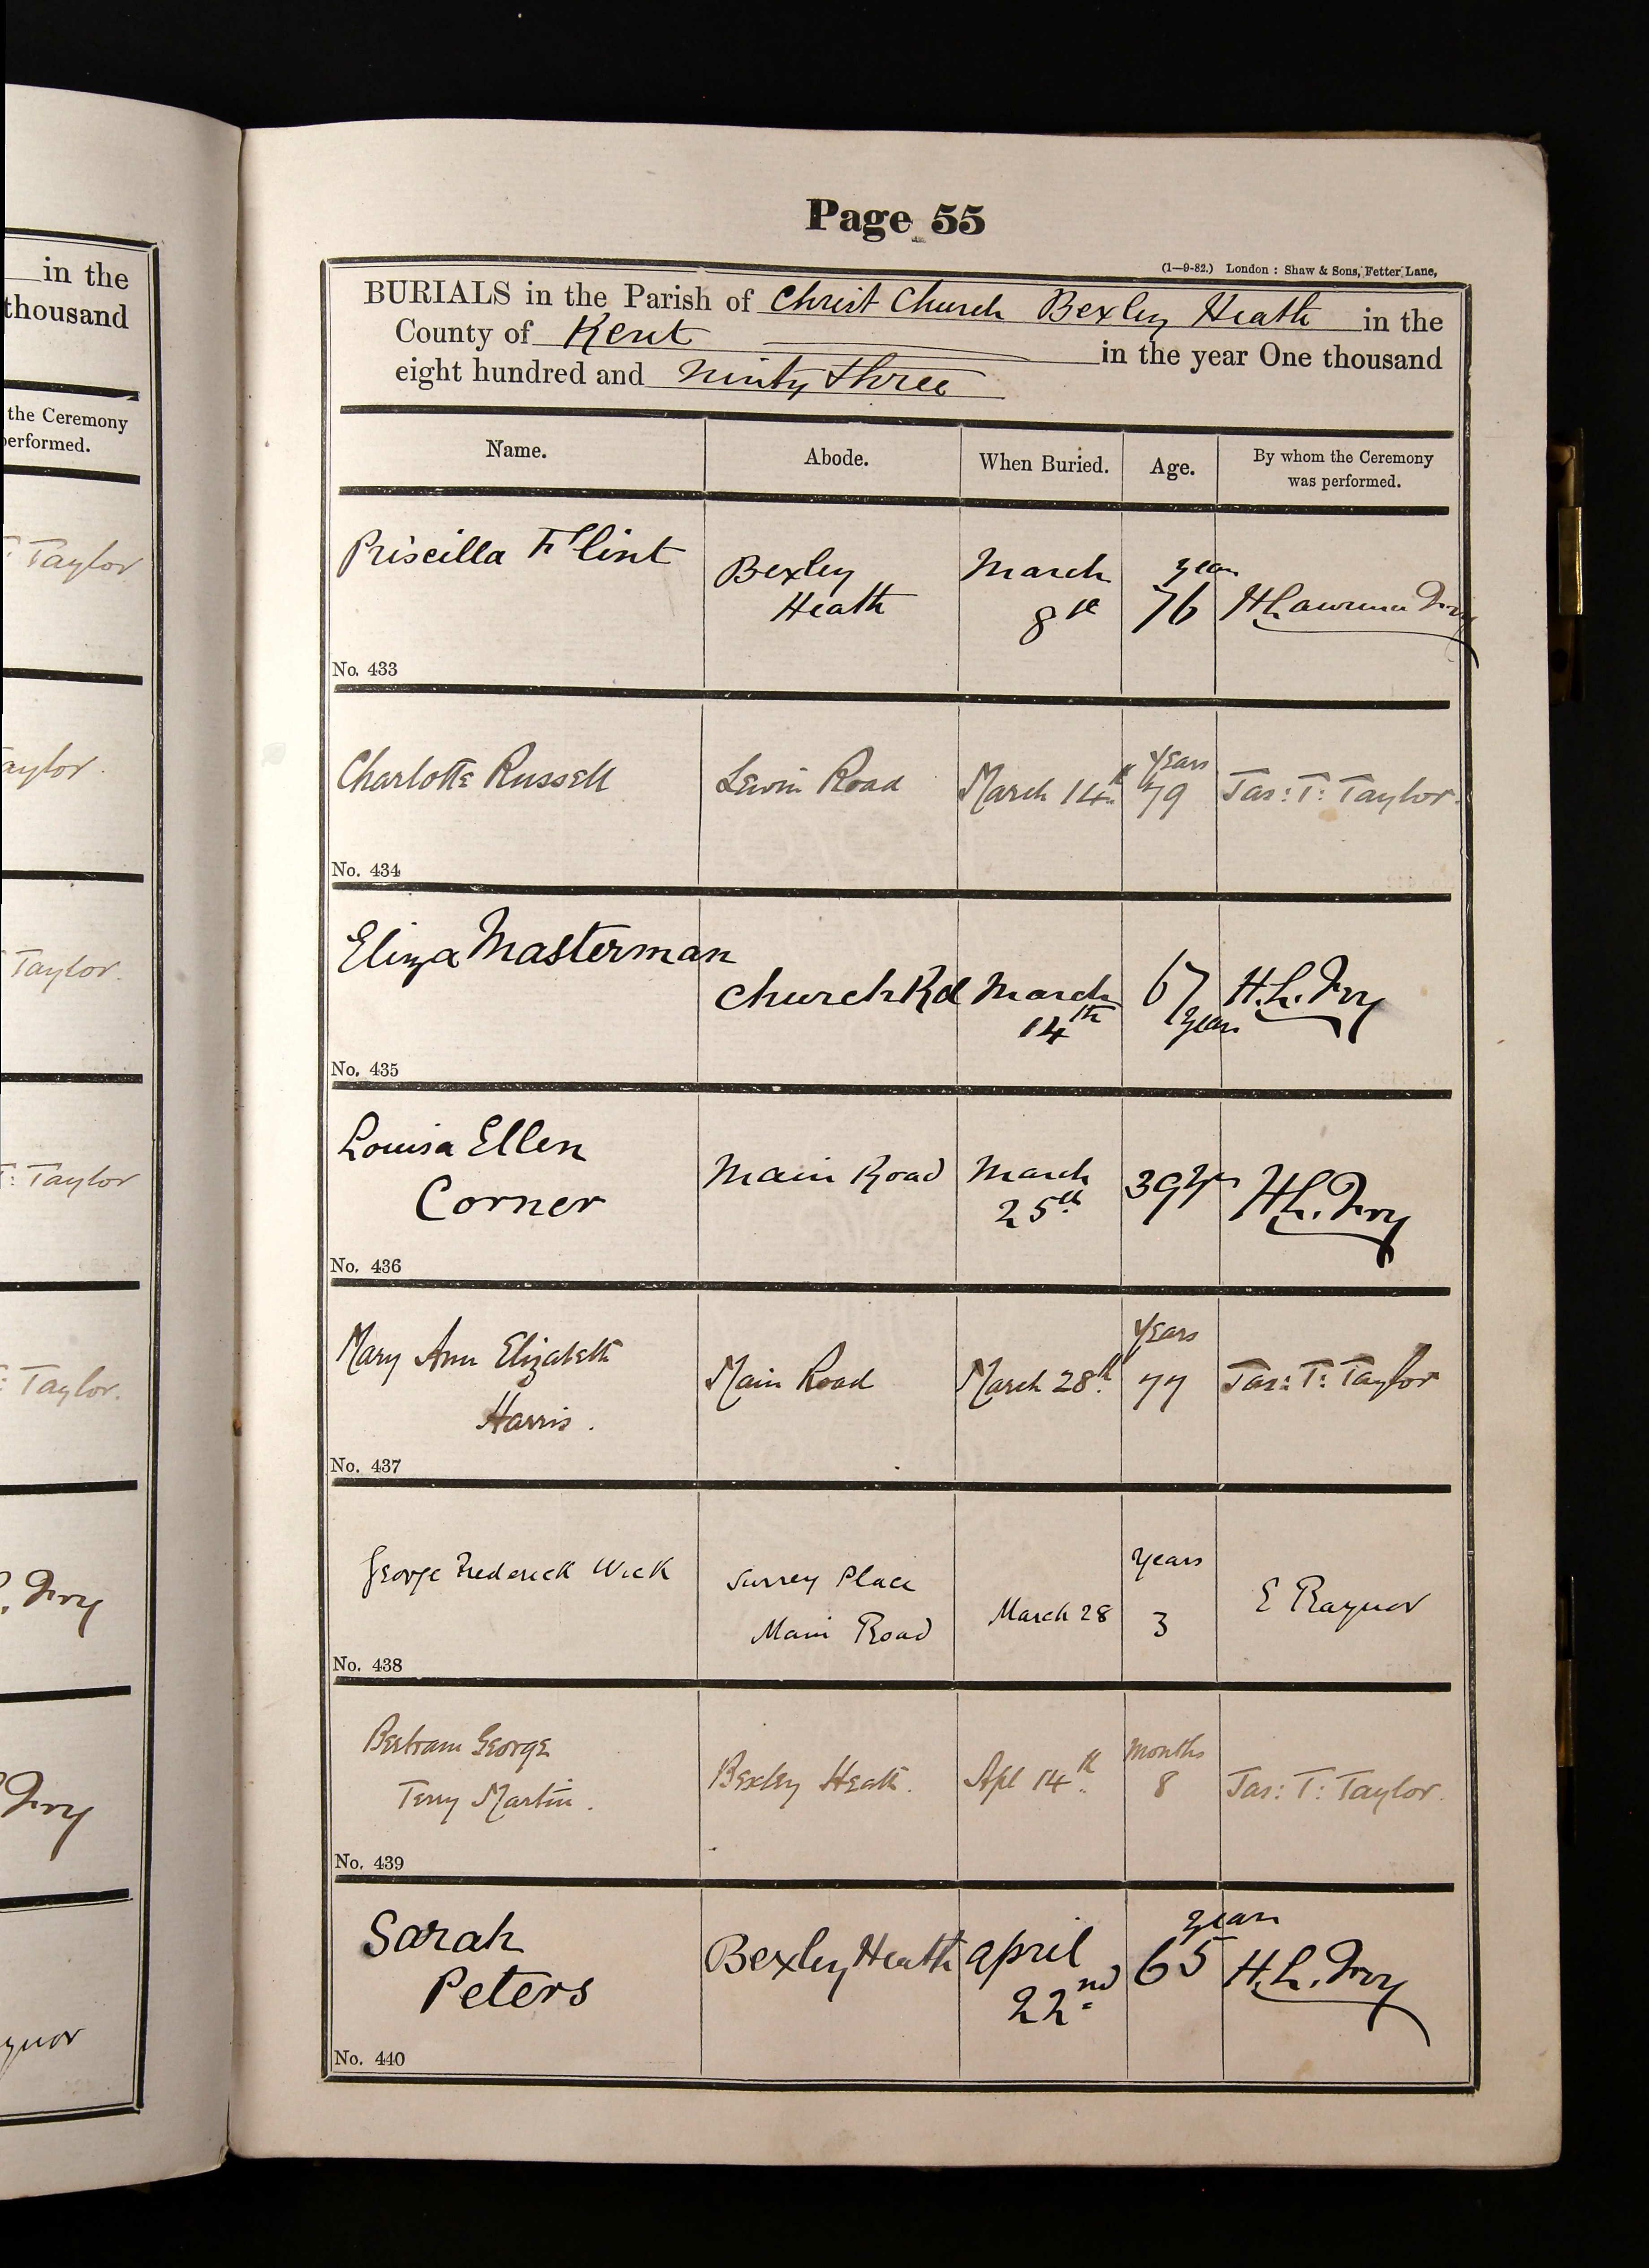 in the
thousand
the Ceremony
performed.
T Taylor
aylor.
Taylor.
T: Taylor
: Taylor.
. Ivy
Ivy
Page 55
(1—9-82.) London : Shaw & Sons, Fetter Lane,
BURIALS in the Parish of Christ Church Bexley Heath in the
County of Kent in the year One thousand
eight hundred and ninty three
Name. Abode. When Buried. Age. By whom the Ceremony
was performed.
Priscilla Flint Bexley Heath March 8th years 76 H Lawrence Ivy
No. 433
Charlotte Russell Lewin Road March 14th years 79 Jas: T: Taylor.
No. 434
Eliza Masterman Church Rd March 14th 67 years H. L. Ivy
No. 435
Louisa Ellen
Corner Main Road March 25th 39 yrs H L. Ivy
No. 436
Mary Ann Elizabeth
Harris. Main Road March 28th years 77 Jas: T: Taylor
No. 437
George Frederick Wick Surrey Place
Main Road March 28 years 3 E Raynor
No. 438
Bertram George
Terry Martin. Bexley Heath. Apl 14th months 8 Jas: T: Taylor.
No. 439
Sarah
Peters Bexley Heath april 22nd years 65 H. L. Ivy
No. 440